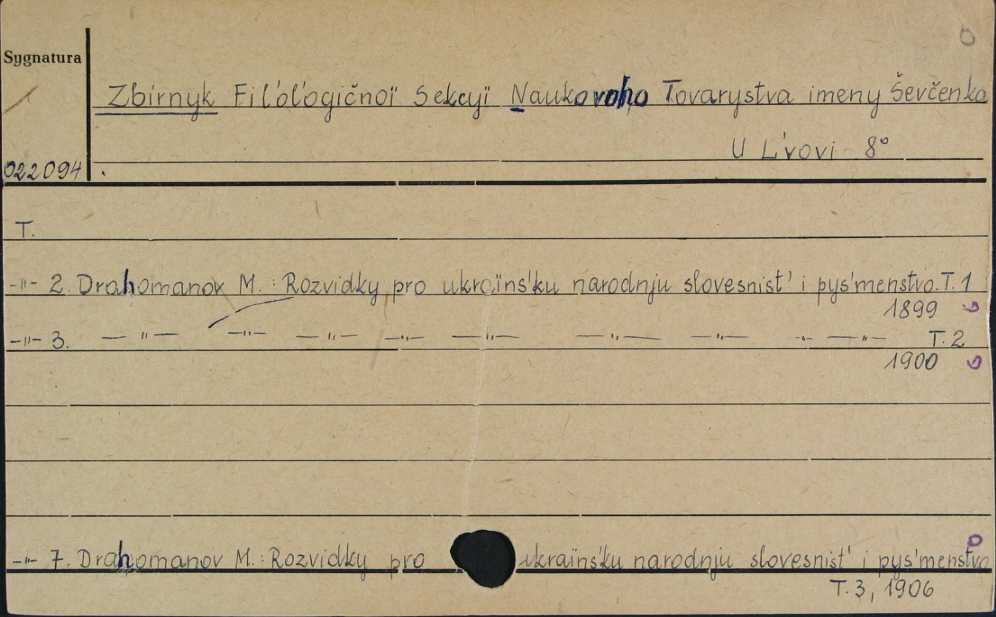 Sygnatura
Zbirnyk Fil'ol'ogičnoï Sekcyï Naukovoho Tovarystva imeny Ševčenka
U L'vovi 8°
022094
T.
-"- 2. Drahomanov M.: Rozvidky pro ukraïns'ku narodnju slovesnist' i pys'menstvo. T. 1
1899
-"- 3. — " — — " — — " — — " — — " — — " — — " — — " — T. 2
1900
-"- 7. Drahomanov M.: Rozvidky pro ukraïns'ku narodnju slovesnist' i pys'menstvo
T. 3, 1906